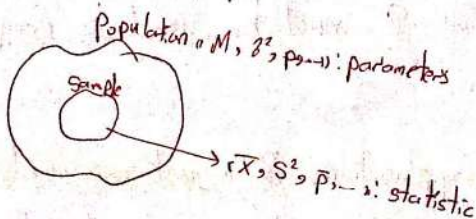 Population (M, σ², p, ...): parameters
Sample
(X̄, S², p̄, ...): statistic